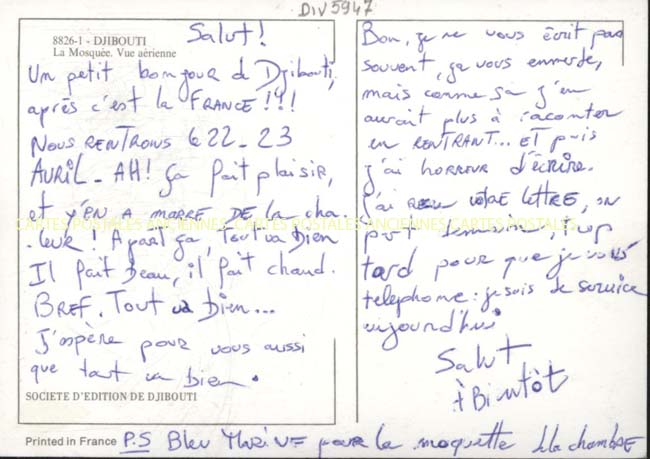 DIV5947
8826-1 - DJIBOUTI
La Mosquée. Vue aérienne
Salut!
Un petit bonjour de Djibouti,
après c'est la FRANCE!!!
NOUS RENTRONS le 22-23
AVRIL - AH! ça fait plaisir,
et y'EN A MARRE DE la cha
-leur! A part ça, Tout va Bien
Il fait Beau, il fait chaud.
BREF. Tout va bien...
J'espère pour vous aussi
que tout va bien.
SOCIETE D'EDITION DE DJIBOUTI
Bon, je ne vous écrit pas
souvent, ça vous emmerde,
mais comme ça j'en
aurait plus à raconter
en RENTRANT... ET puis
j'ai horreur d'écrire.
J'ai reçu votre LETTRE, un
trop
tard pour que je vous
telephone: je suis de service
aujourd'hui
Salut
A Bientôt
CARTES POSTALES ANCIENNES CARTES POSTALES ANCIENNES CARTES POSTALES
Printed in France
P.S Bleu pour la moquette de la chambre